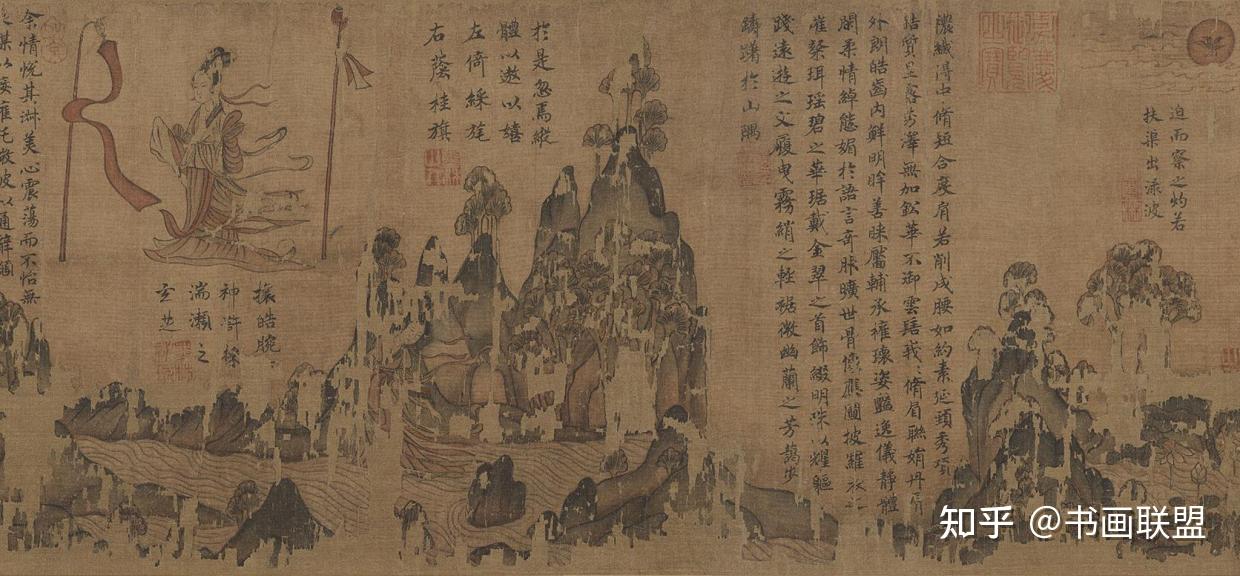 迫而察之灼若
扶渠出淥波
濃纖得中脩短合度肩若削成腰如約素延頸秀項
質呈露芳澤無加鉛華不御雲髻峩〻脩眉聯娟丹脣
外朗皓齒內鮮明眸善睞靨輔承權瓌姿豔逸儀靜體
閑柔情綽態媚於語言奇服曠世骨像應圖披羅衣之
璀粲珥瑤碧之華琚戴金翠之首飾綴明珠以耀軀
踐遠遊之文履曳霧綃之輕裾微幽蘭之芳藹步
踟躕於山隅
於是忽焉縱
體以遨以嬉
左倚綵旄
右蔭桂旗
攘皓腕
神滸採
湍瀨之
玄芝
余情悅其淑美心震蕩而不怡無
媒以接託微波以通辭
知乎 @书画联盟